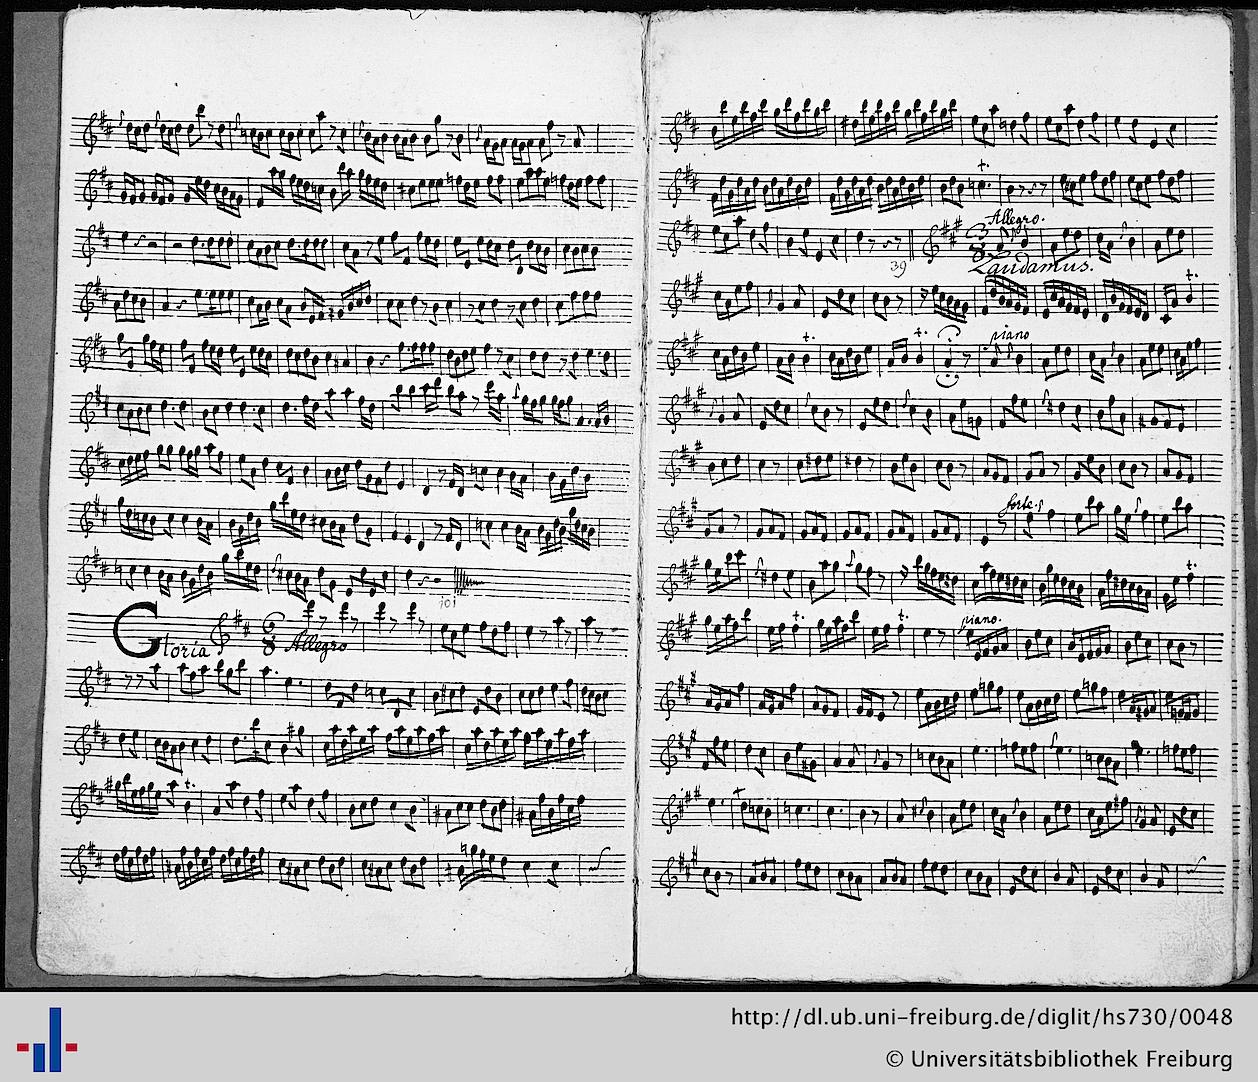 101
Gloria
6
8
Allegro
Allegro.
3
8
39
Laudamus.
piano
forte.
piano.
http://dl.ub.uni-freiburg.de/diglit/hs730/0048
© Universitätsbibliothek Freiburg